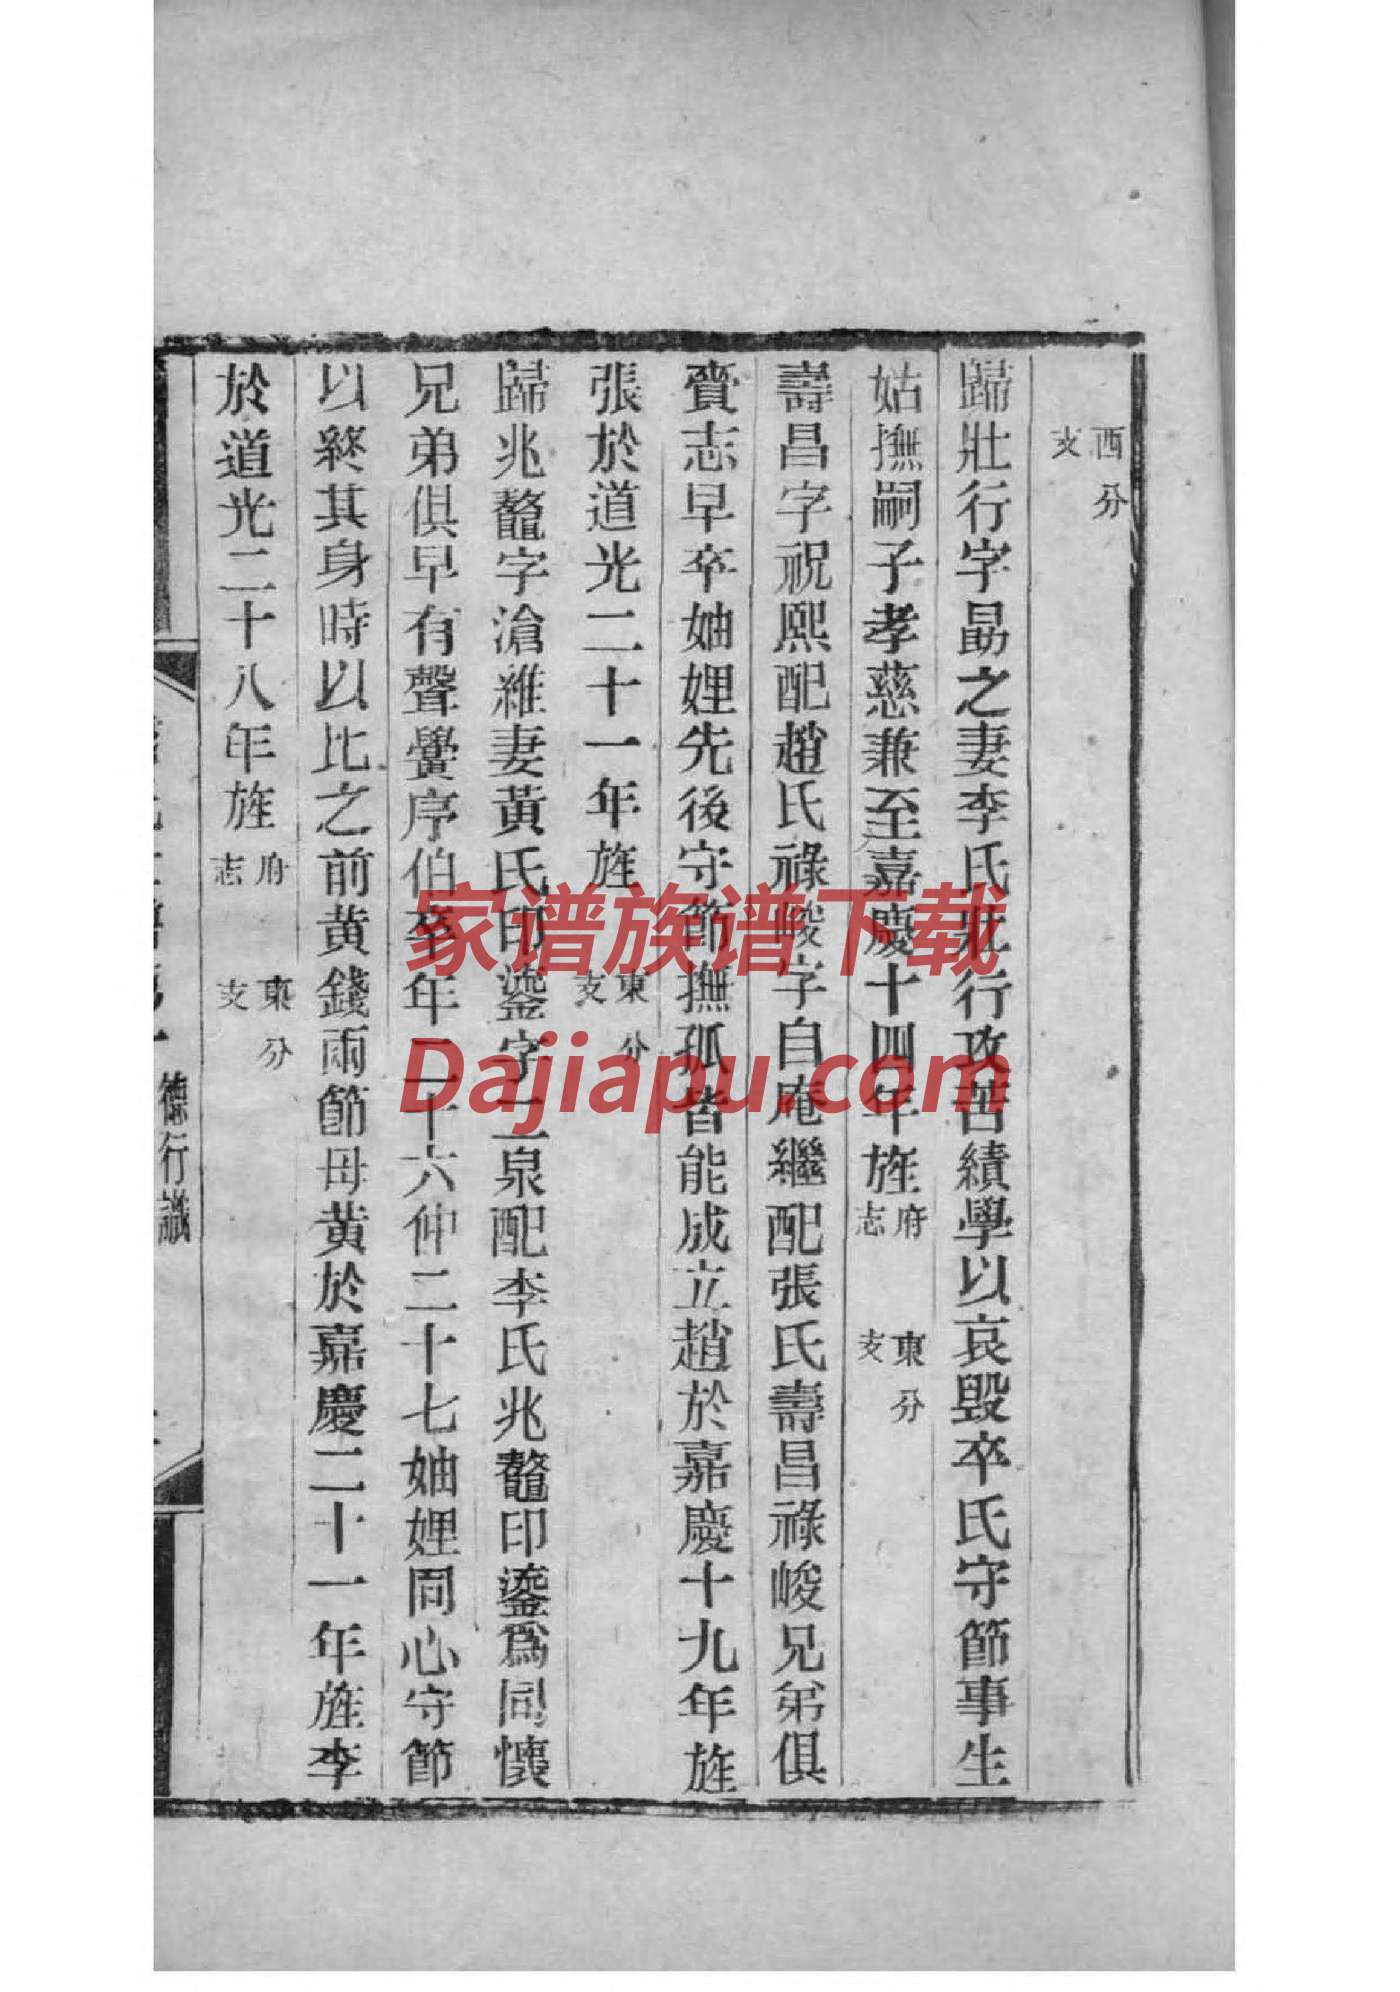 西分支
歸壯行字勗之妻李氏壯行攻苦績學以哀毀卒氏守節事生
姑撫嗣子孝慈兼至嘉慶十四年旌府志 東分支
壽昌字祝熙配趙氏祿峻字自庵繼配張氏壽昌祿峻兄弟俱
賫志早卒妯娌先後守節撫孤皆能成立趙於嘉慶十九年旌
張於道光二十一年旌 東分支
歸兆鼇字滄雒妻黃氏印鎏字二泉配李氏兆鼇印鎏為同懷
兄弟俱早有聲黌序伯卒年二十六仲二十七妯娌同心守節
以終其身時以比之前黄錢兩節母黄於嘉慶二十一年旌李
於道光二十八年旌府志 東分支
德行識
家谱族谱下载
Dajiapu.com